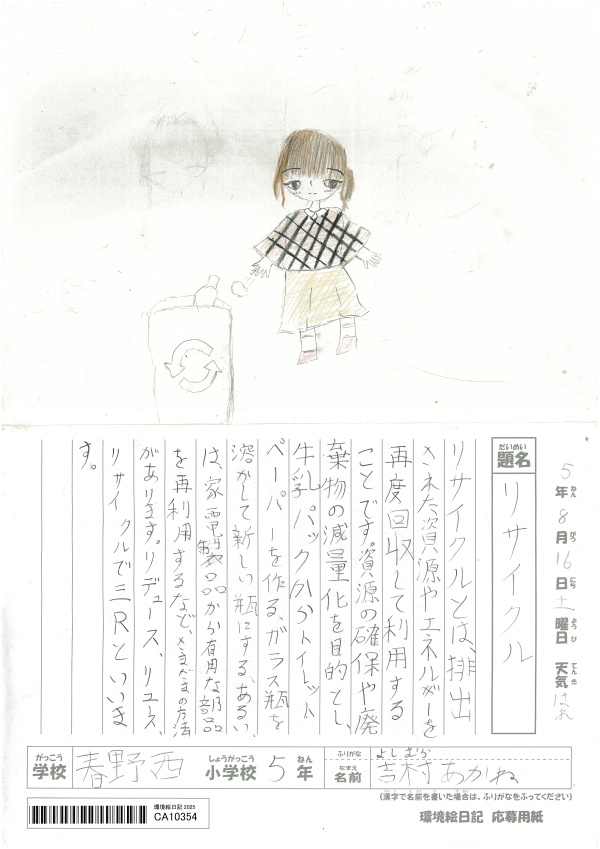 5年ねん8月がつ16日にち土曜日ようび 天気てんき はれ
だいめい
題名 リサイクル
リサイクルとは、排出
された資源やエネルギーを
再度回収して利用する
ことです。資源の確保や廃
棄物の減量化を目的とし、
牛乳パックからトイレット
ペーパーを作る、ガラス瓶を
溶かして新しい瓶にする、あるい
は、家電製品から有用な部品
を再利用するなど、さまざまの方法
があります。リデュース、リユース、
リサイクルで三Rといいま
す。
がっこう しょうがっこう ねん ふりがな よしむら
学校 春野西 小学校 5年 なまえ 名前 吉村 あかね
(漢字で名前を書いた場合は、ふりがなをふってください)
環境絵日記 2025
CA10354
環境絵日記 応募用紙